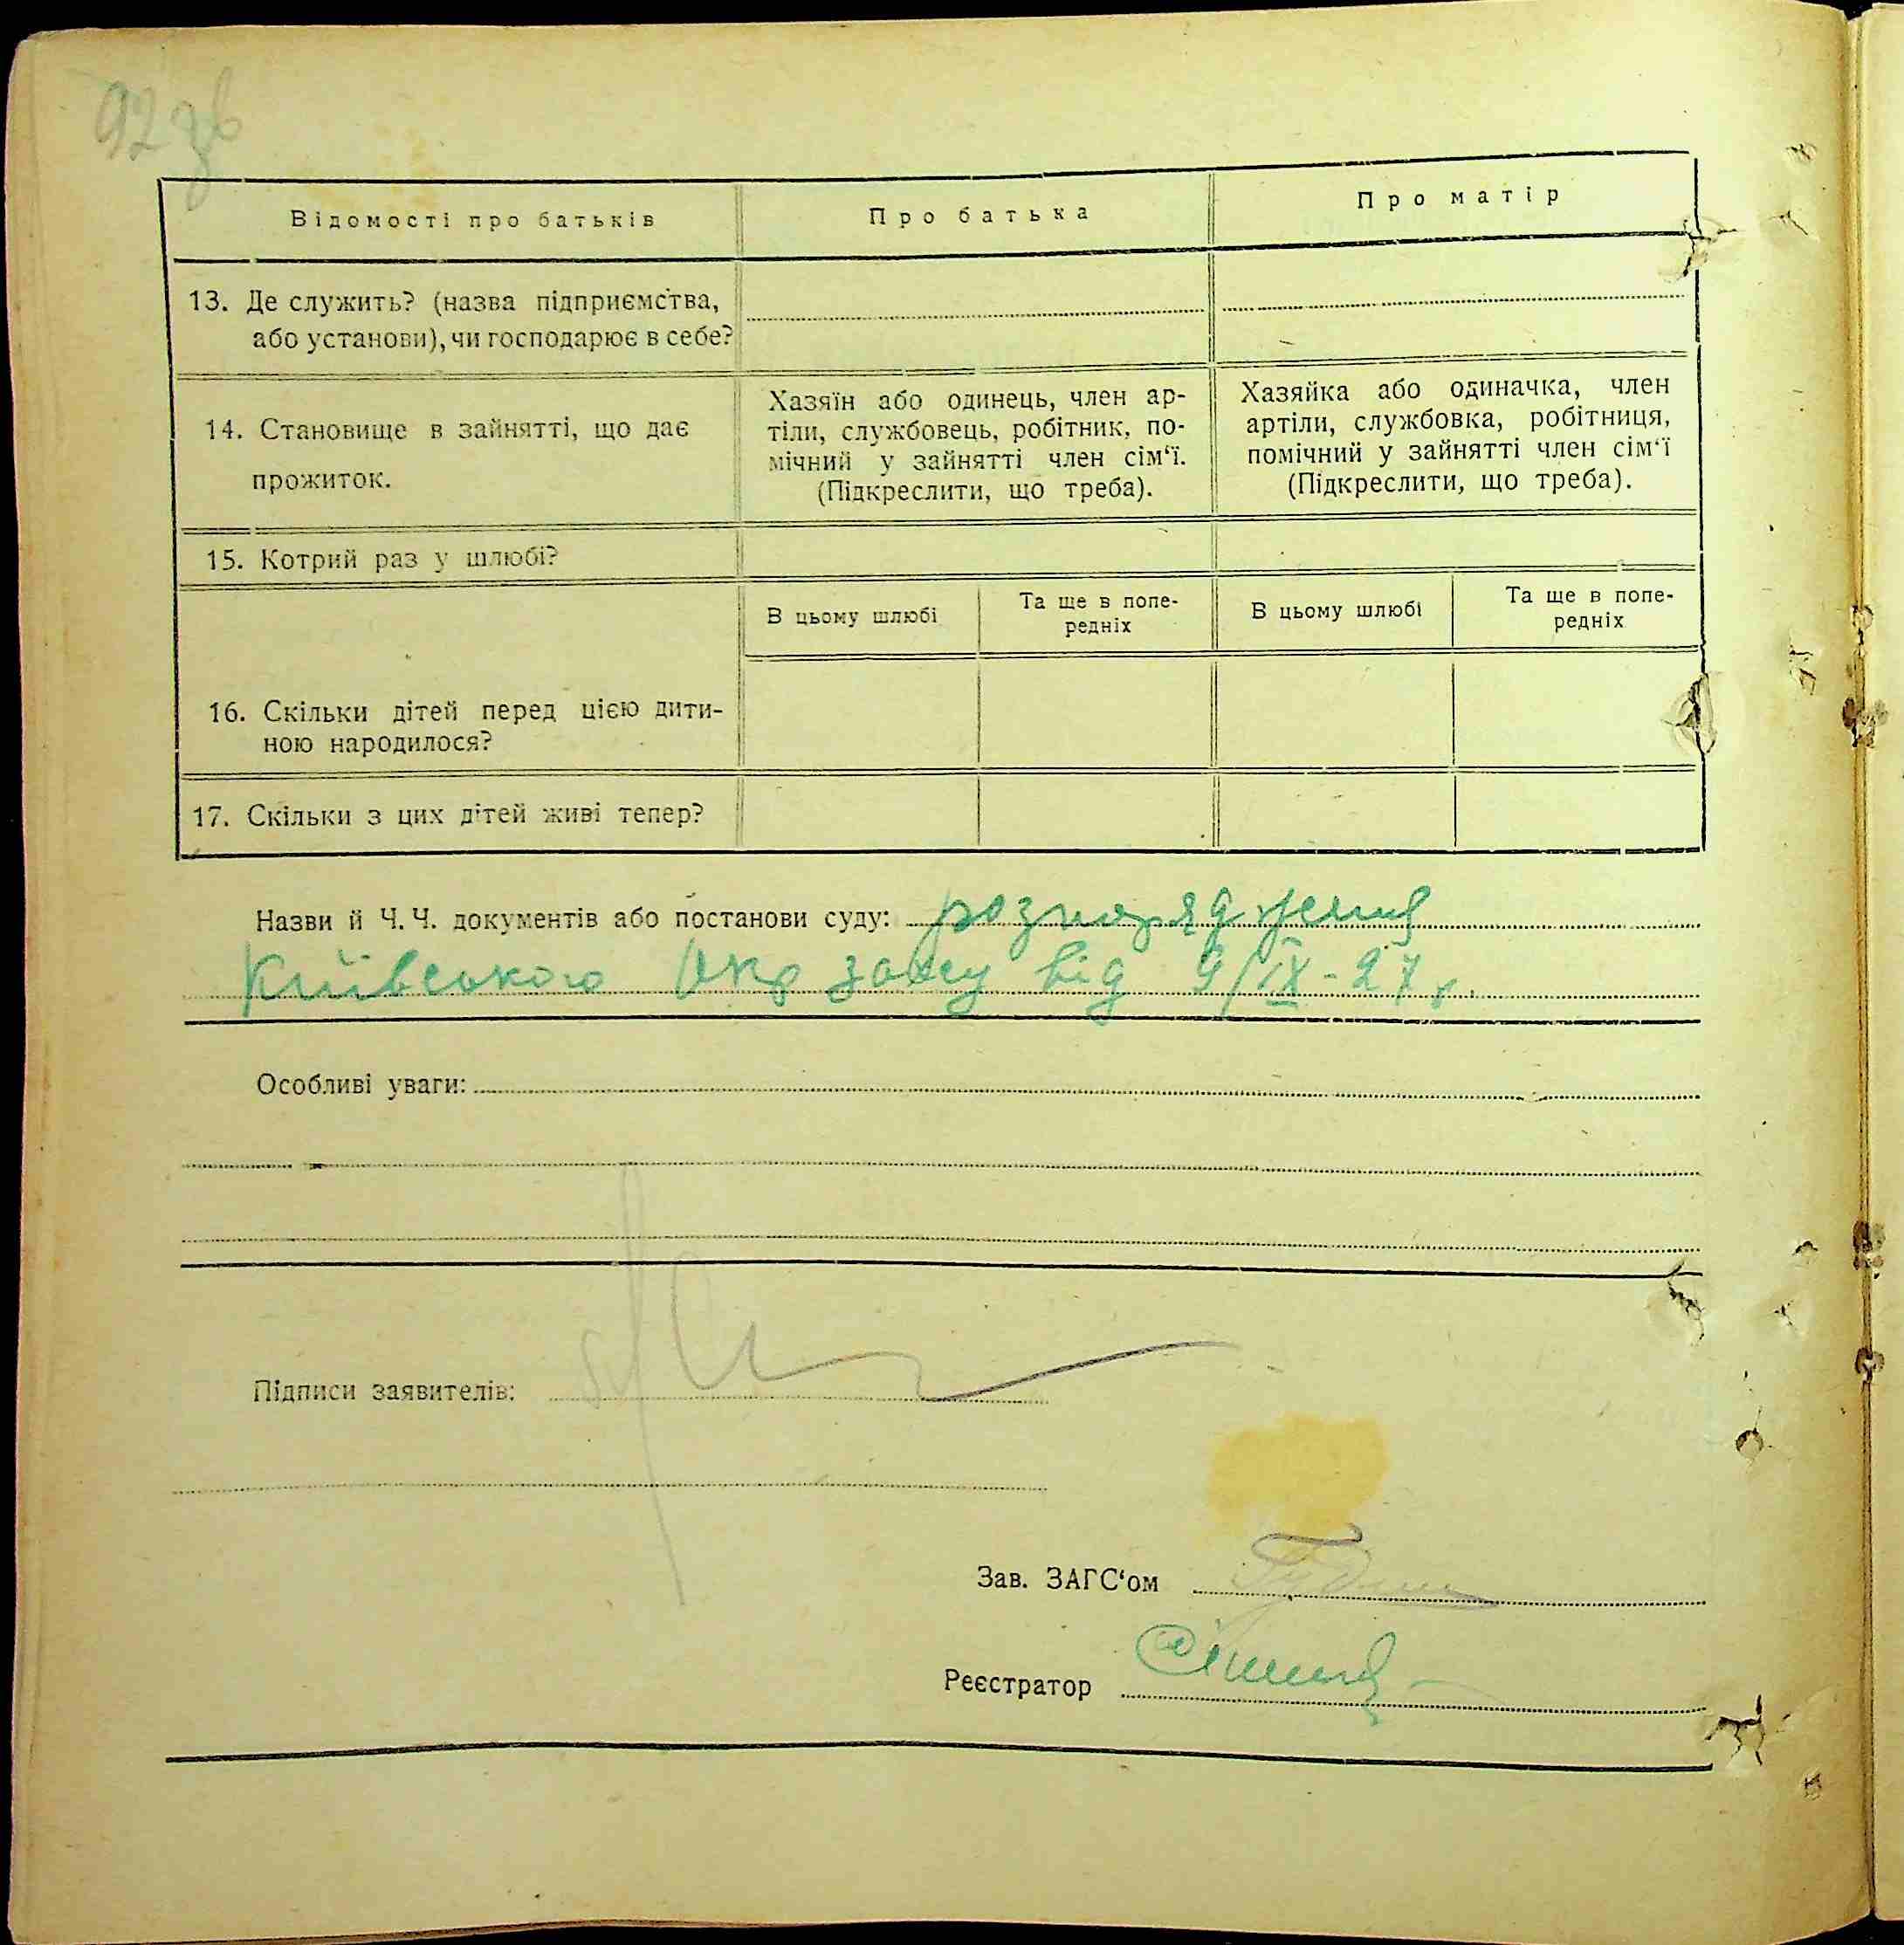 92 зв
Відомості про батьків
Про батька
Про матір
13. Де служить? (назва підприємства,
або установи), чи господарює в себе?
14. Становище в зайнятті, що дає
прожиток.
Хазяїн або одинець, член ар-
тіли, службовець, робітник, по-
мічний у зайнятті член сім‘ї.
(Підкреслити, що треба).
Хазяйка або одиначка, член
артіли, службовка, робітниця,
помічний у зайнятті член сім‘ї
(Підкреслити, що треба).
15. Котрий раз у шлюбі?
В цьому шлюбі
Та ще в попе-
редніх
В цьому шлюбі
Та ще в попе-
редніх
16. Скільки дітей перед цією дити-
ною народилося?
17. Скільки з цих дітей живі тепер?
Назви й Ч. Ч. документів або постанови суду: розпорядження
Київського Окр загсу від 9/IX-27 р.
Особливі уваги:
Підписи заявителів:
Зав. ЗАГС‘ом
Реєстратор